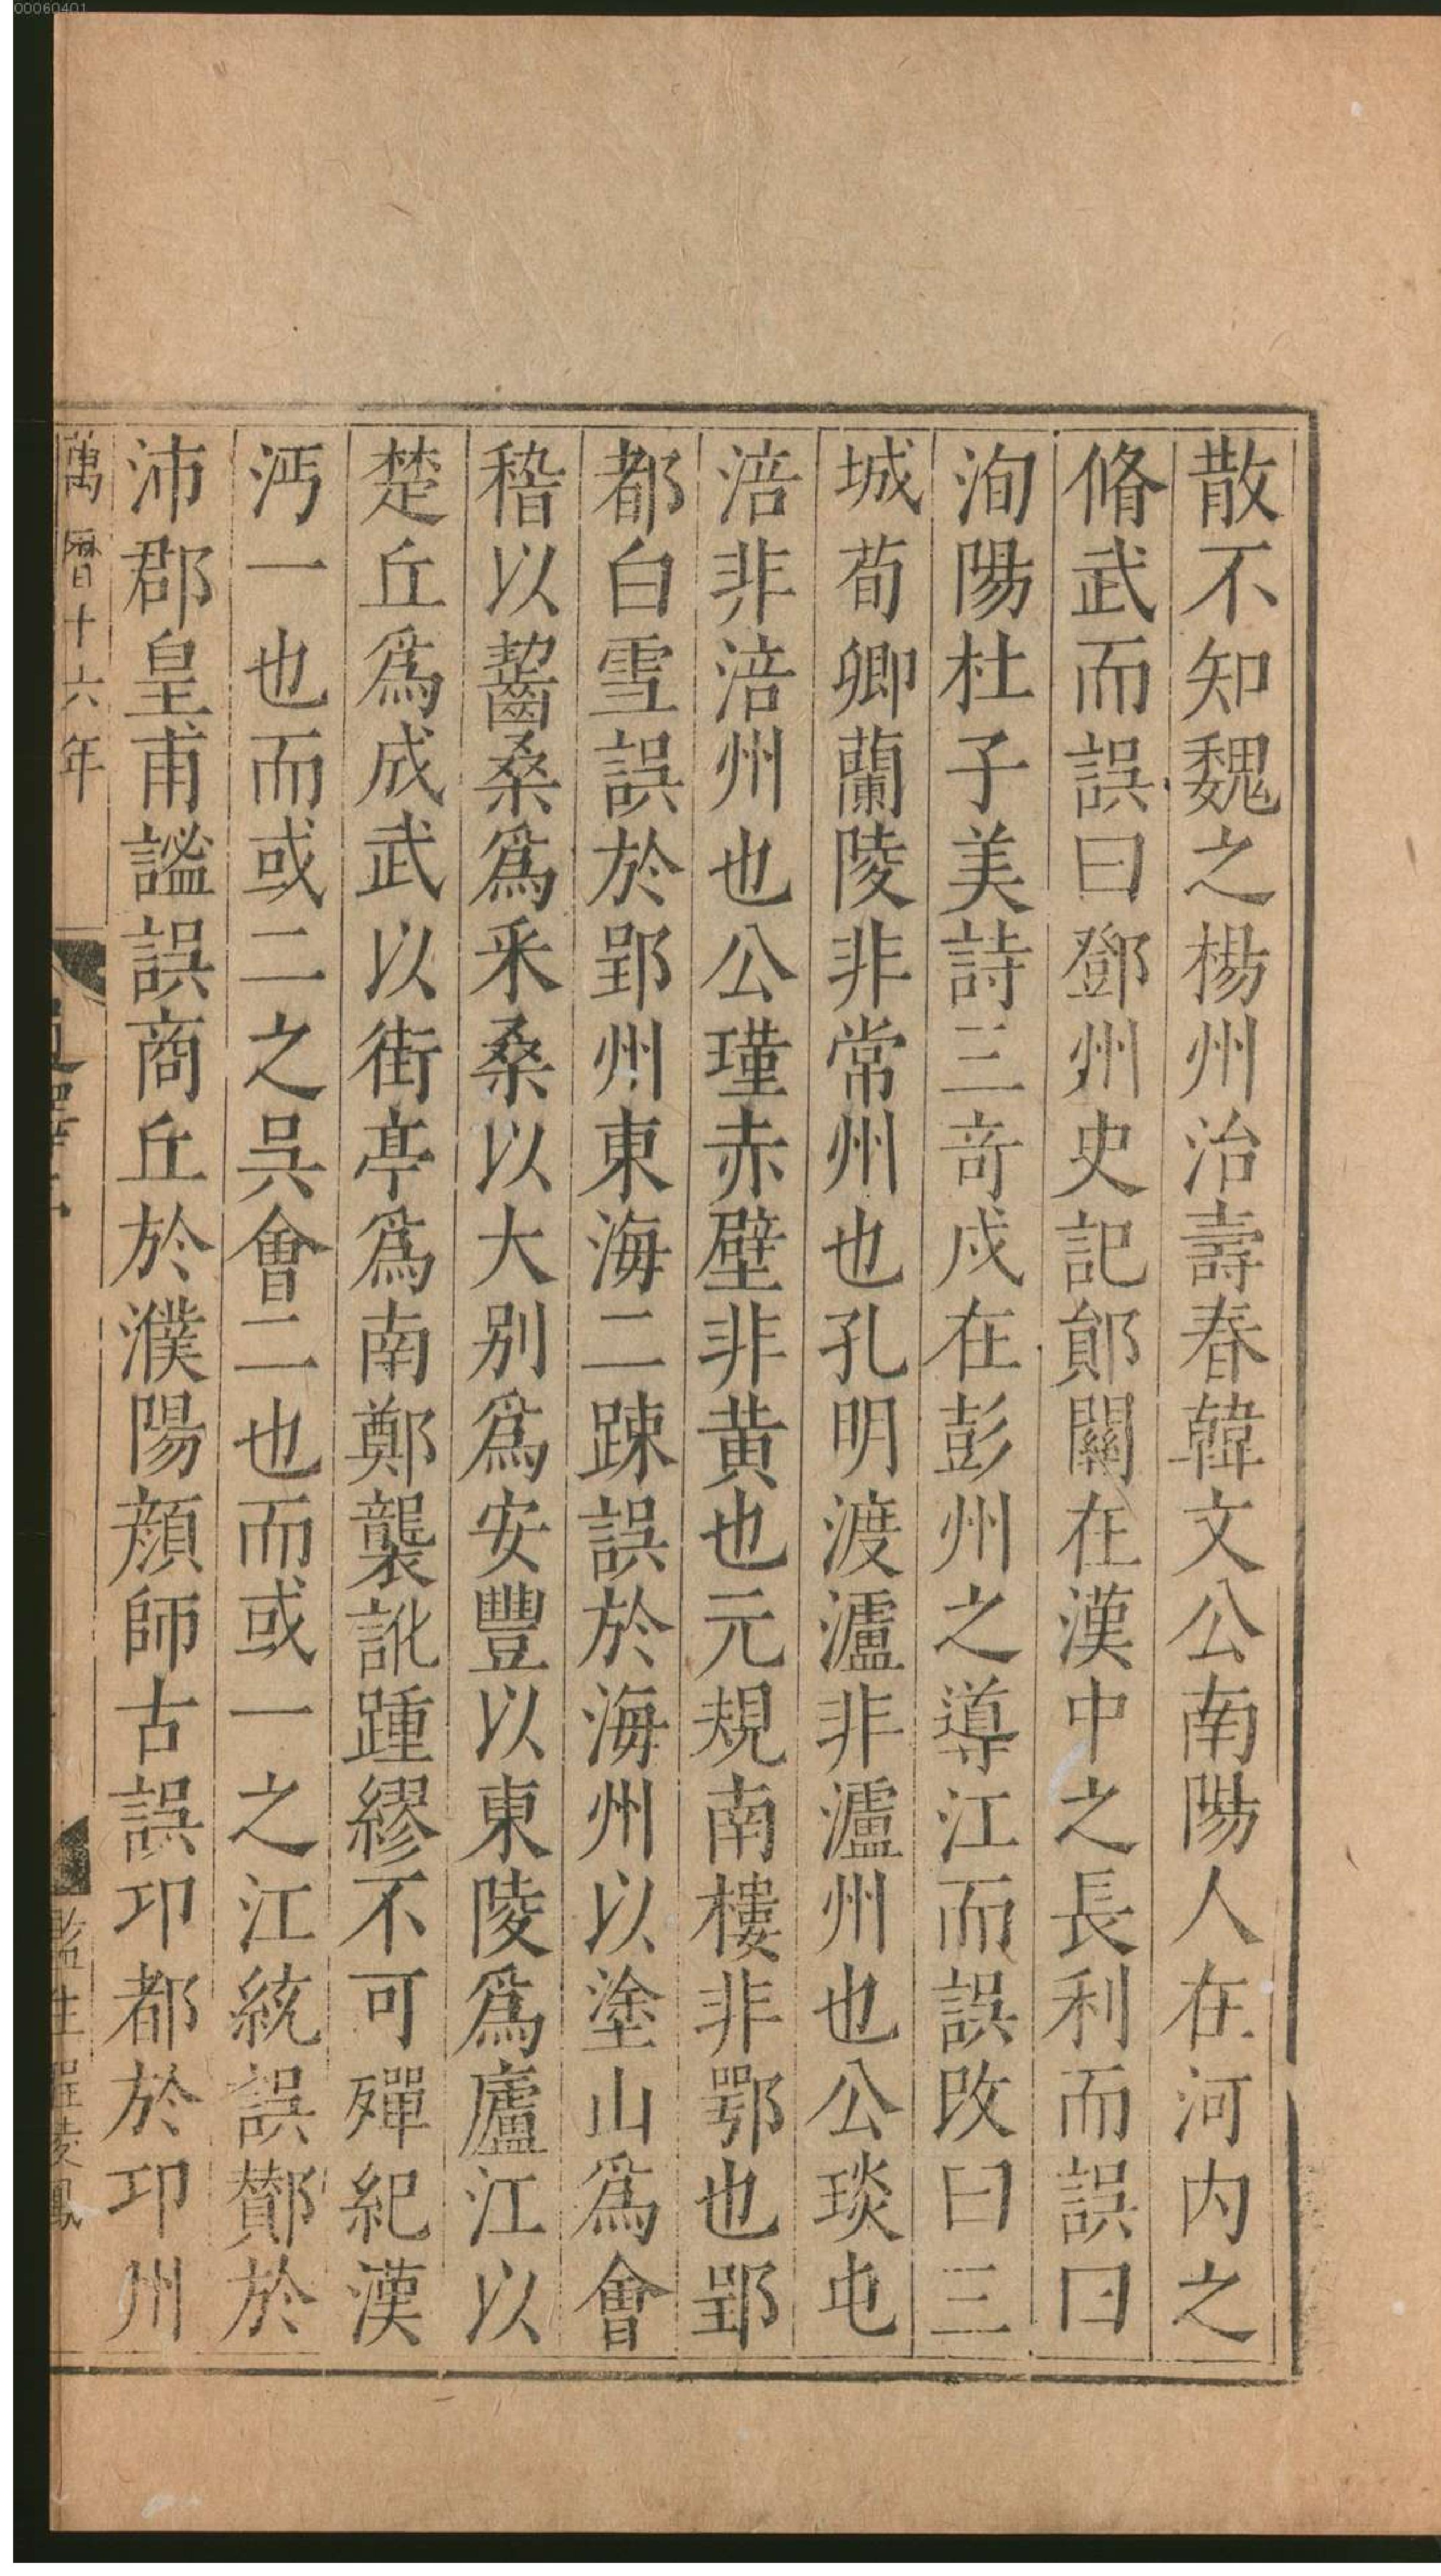 00060401
散不知魏之楊州治壽春韓文公南陽人在河内之
脩武而誤曰鄧州史記鄖關在漢中之長利而誤曰
洵陽杜子美詩三竒戍在彭州之導江而誤改曰三
城荀卿蘭陵非常州也孔明渡瀘非瀘州也公琰屯
涪非涪州也公瑾赤壁非黄也元規南樓非鄂也郢
都白雪誤於郢州東海二踈誤於海州以塗山爲會
稽以齧桑爲采桑以大别爲安豐以東陵爲廬江以
楚丘爲成武以街亭爲南鄭襲訛踵繆不可殫紀漢
沔一也而或二之吳會二也而或一之江統誤酇於
沛郡皇甫謐誤商丘於濮陽顔師古誤邛都於邛州
萬曆十六年
監生